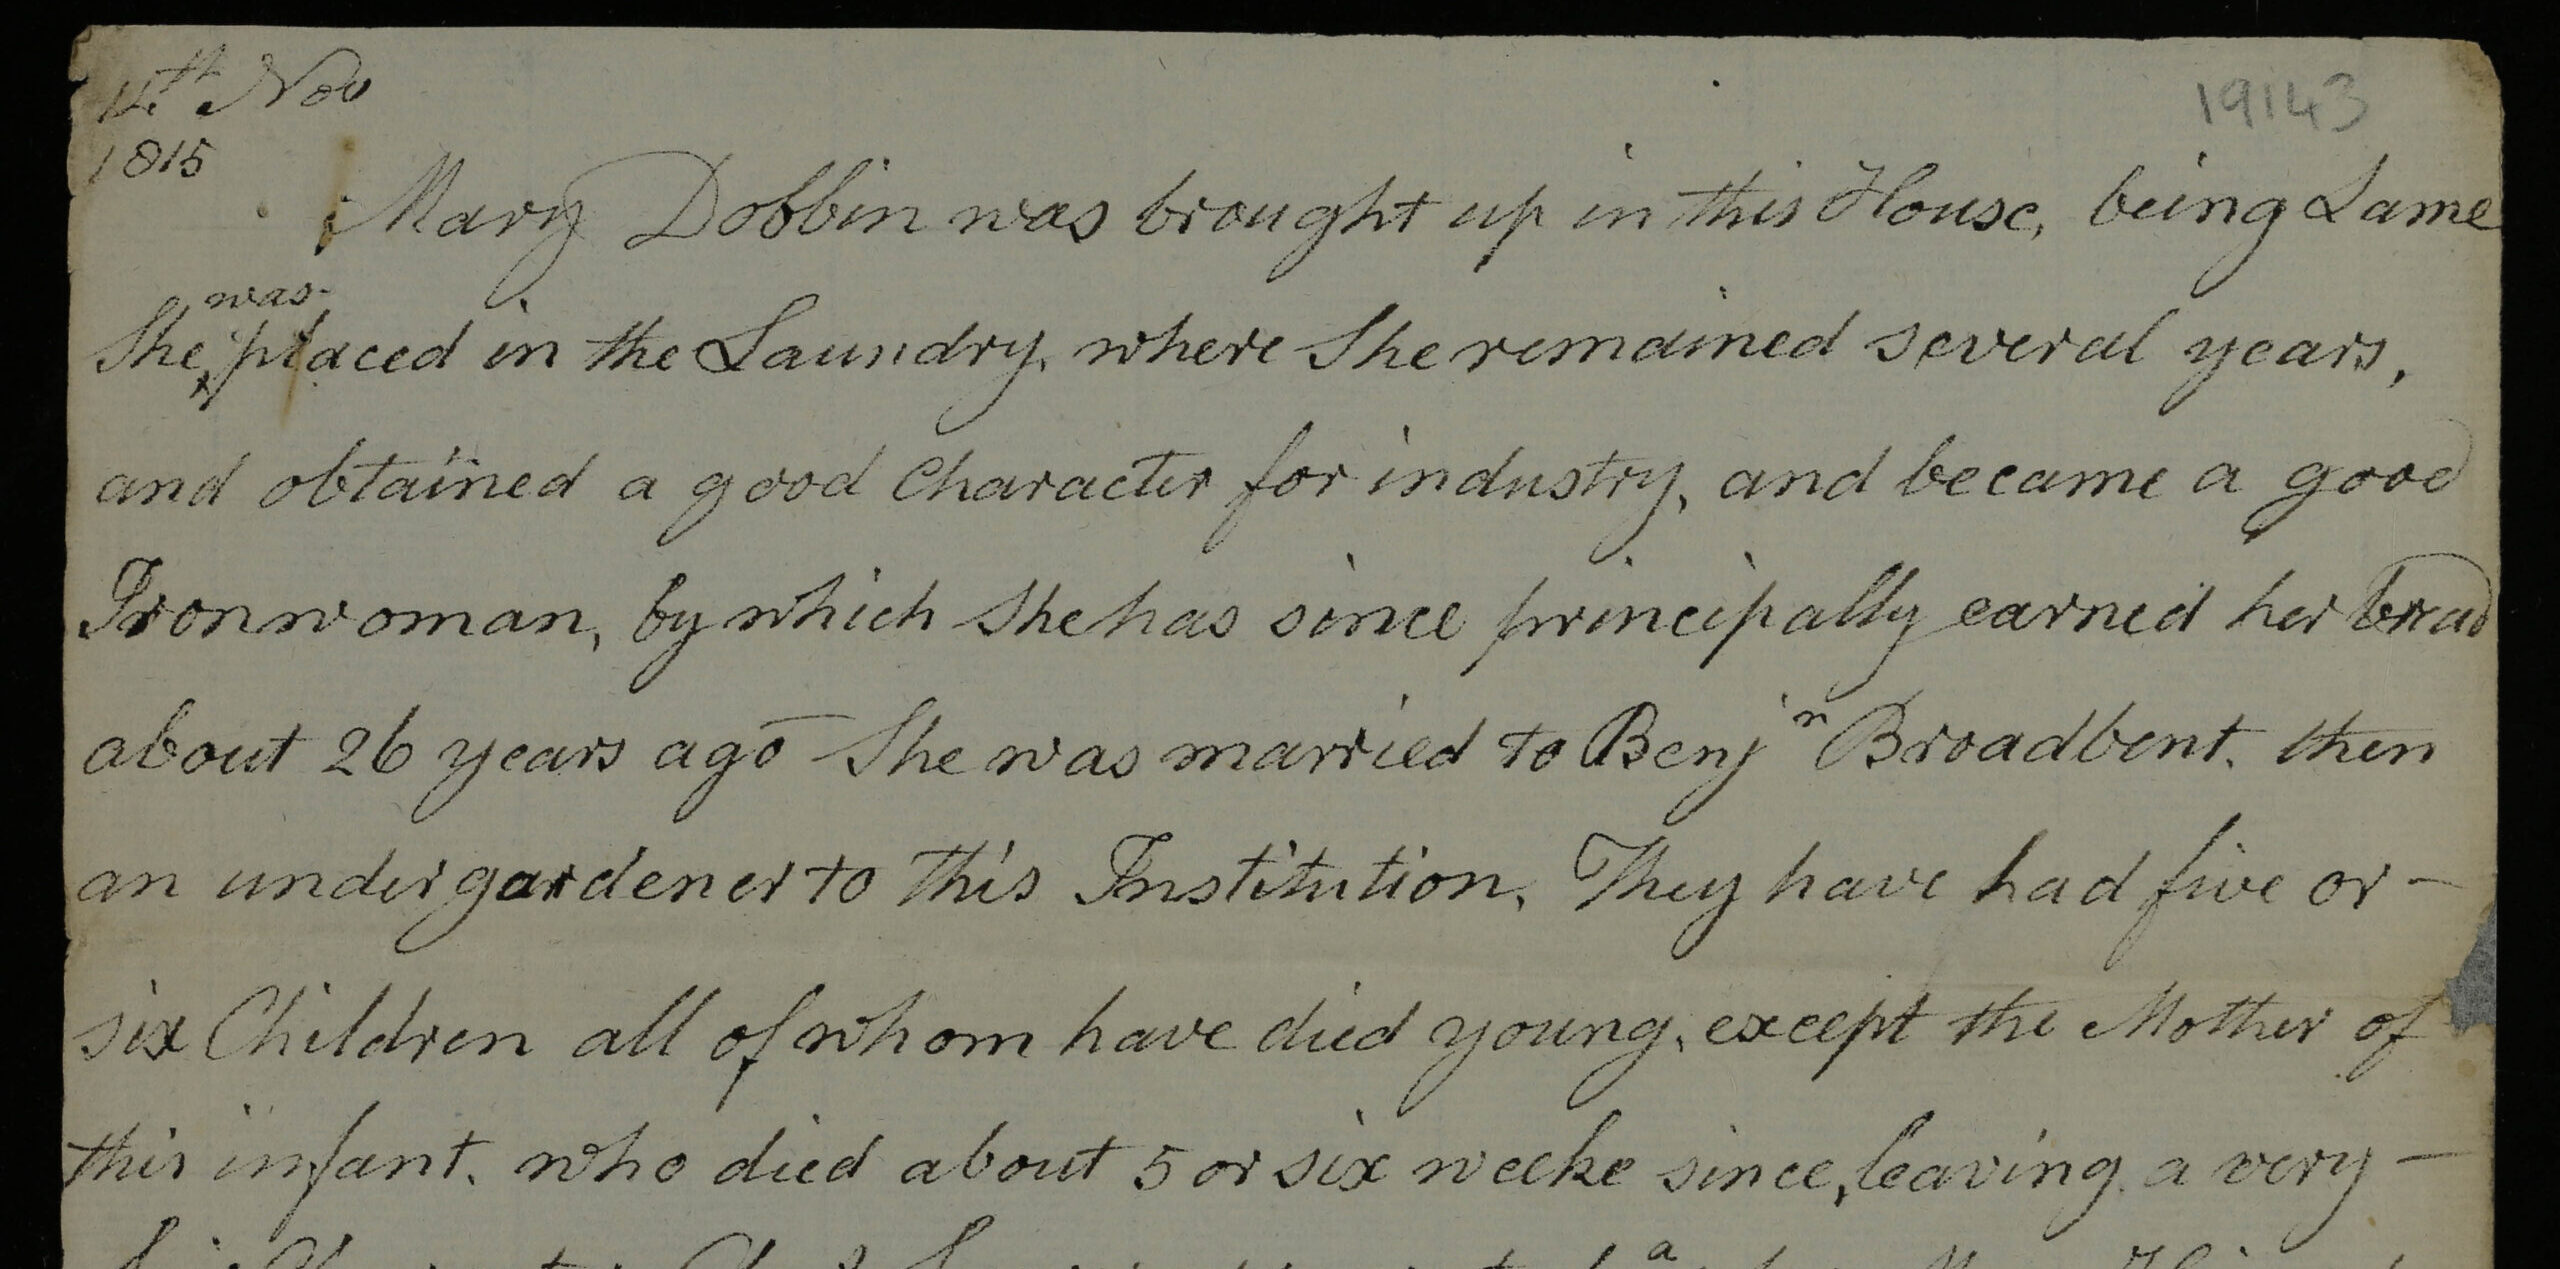 14th Nov
19143
1815
Mary Dobbin was brought up in this House, being Lame
was
She placed in the Laundry, where She remained several years,
and obtained a good Character for industry, and became a good
Ironwoman, by which She has since principally earned her bread
about 26 years ago She was married to Benjn Broadbent, then
an under gardener to this Institution, They have had five or-
six Children all of whom have died young, except the Mother of
this infant, who died about 5 or six weeks since, leaving a very-